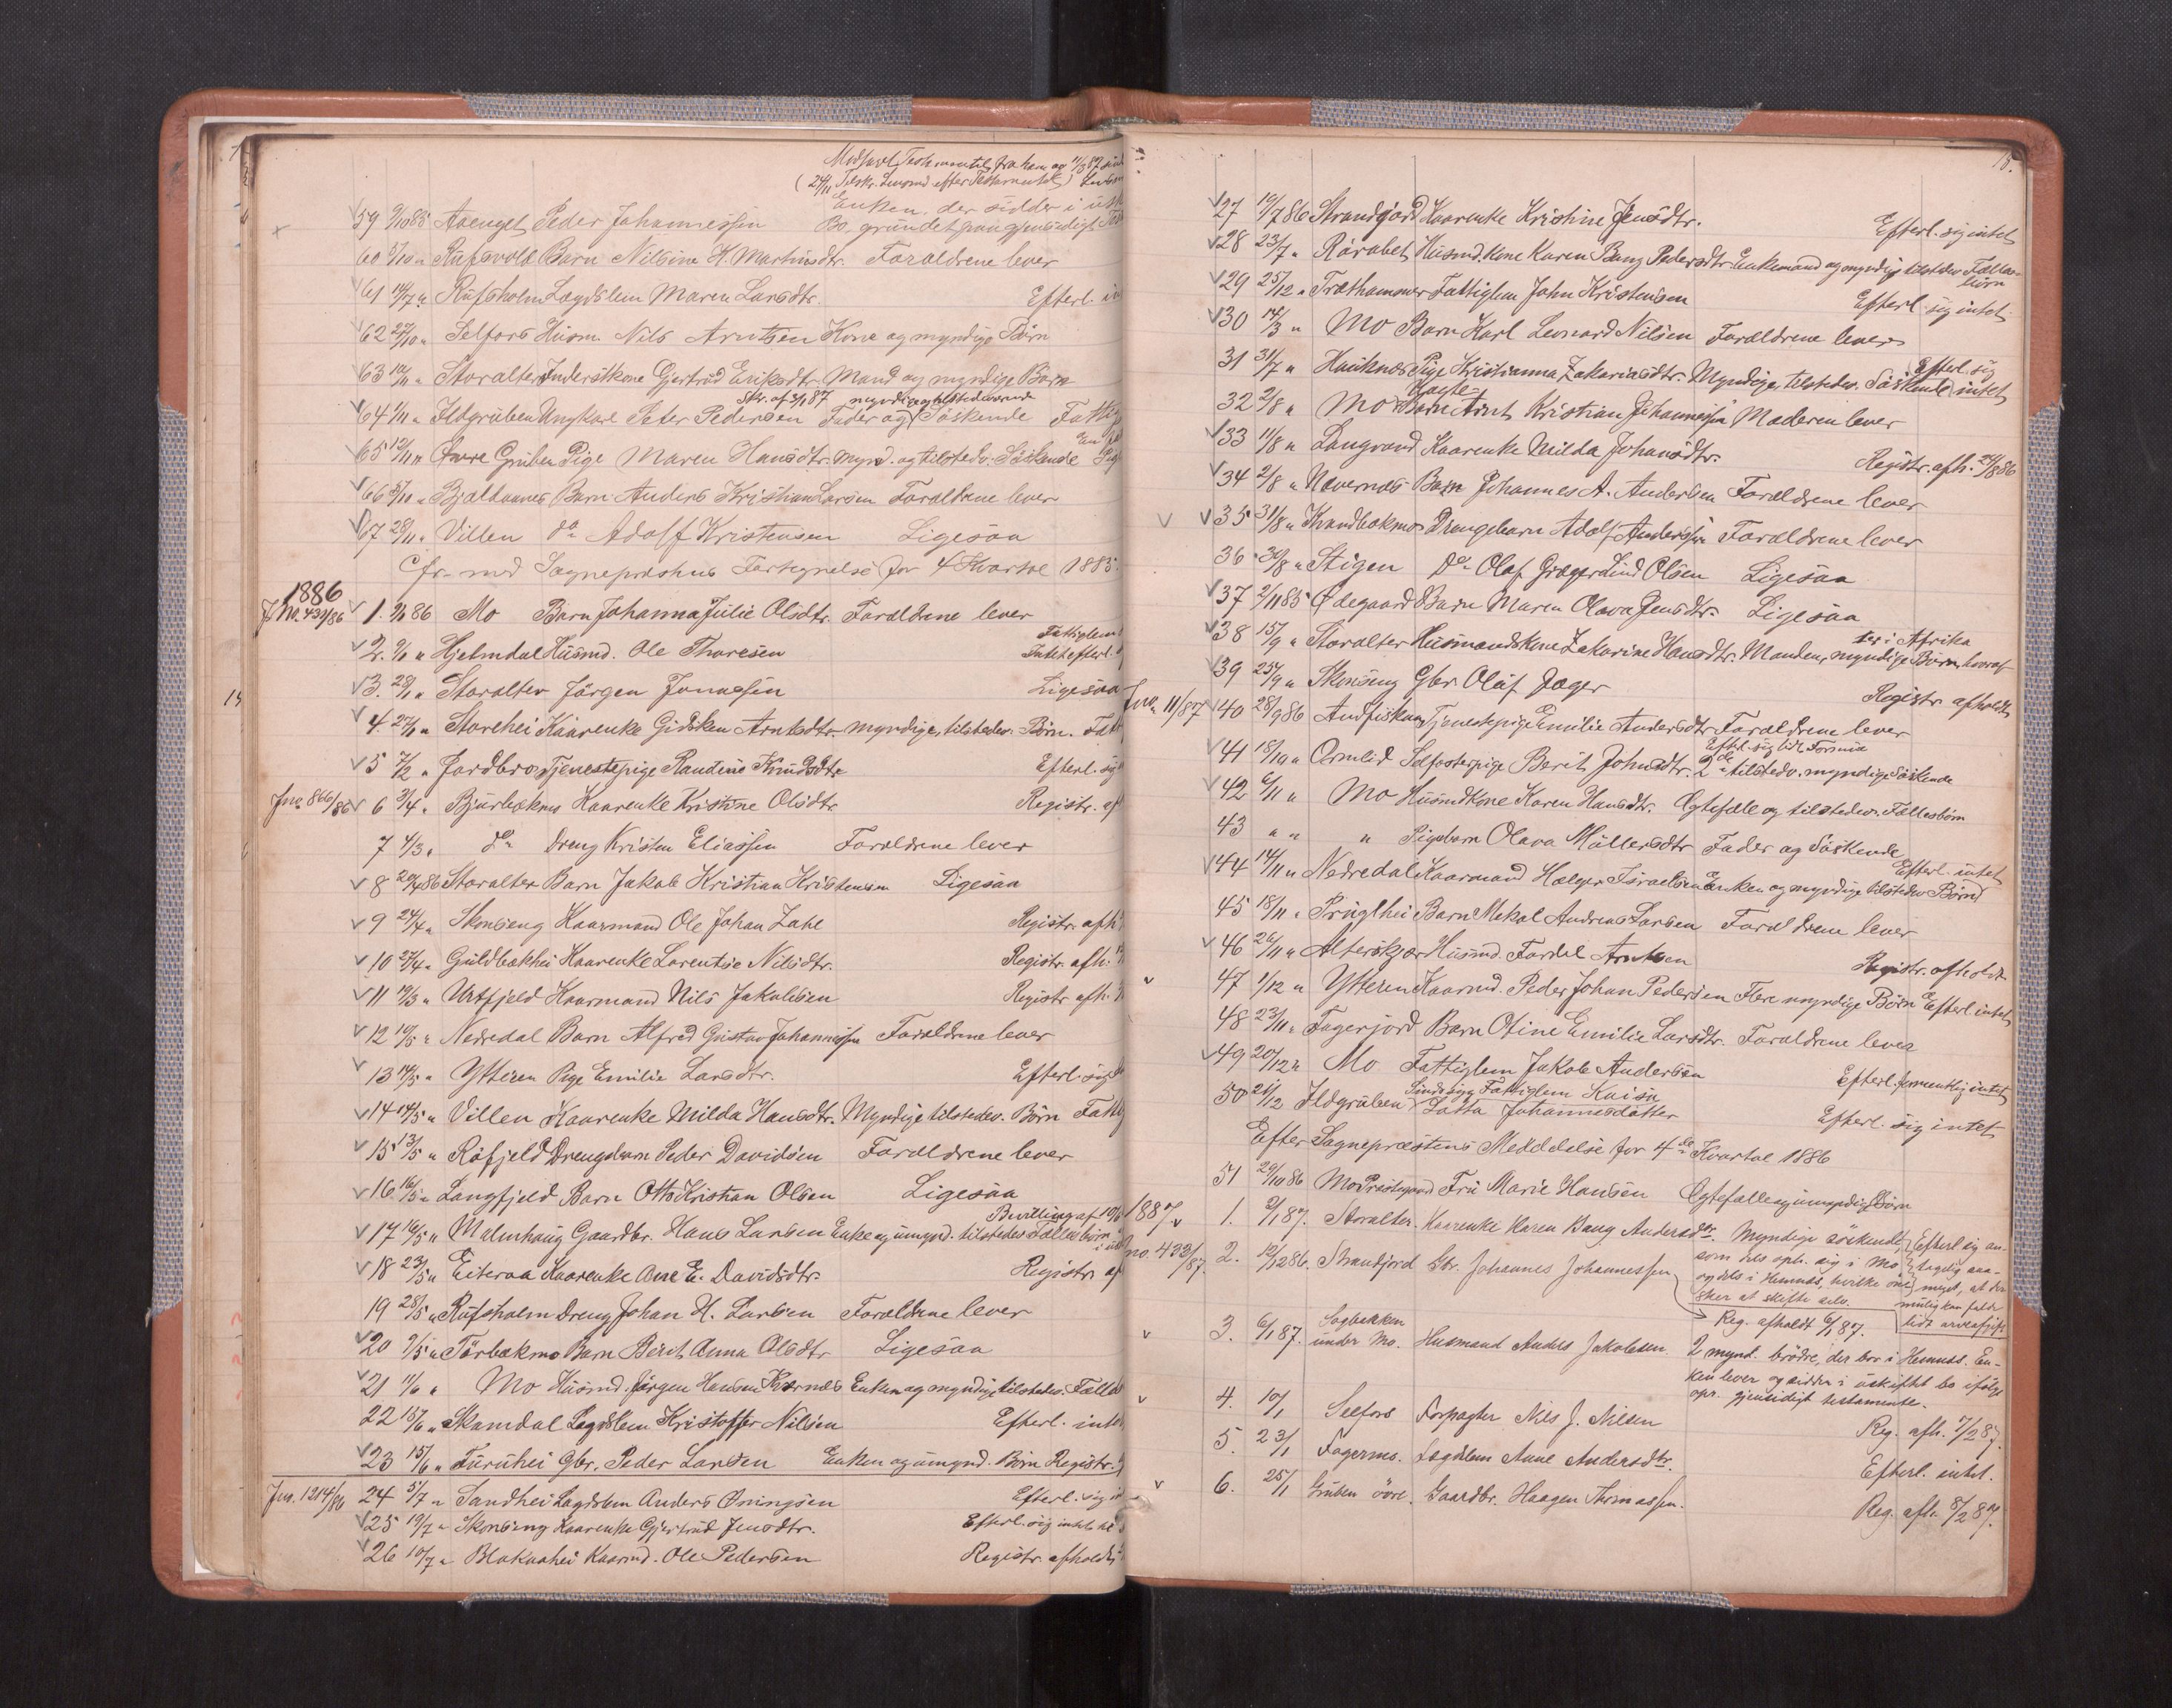 (24/11 Tilskr. Lensmd efter Testamentet)
Enken, der sidder i
59 9/10 85 Aaenget Peder Johannessen Bo, grundet paa gjensidigt
60 5/10 " Rufsvold Barn Nilsine H. Martinsdtr. Forældrene lever
61 14/7 " Rufsholm Lægdslem Maren Larsdtr. Efterl.
62 22/10 " Selfors Husm. Nils Arntsen Kone og myndige Børn
63 10/11 " Storalter Inderstkone Gjertrud Eriksdtr. Mand og myndige Børn
Skr. af 3/1 87 myndige tilstedeværende
64 1/11 " Ildgruben Ungkarl Peter Pedersen Fader og Söskende
65 12/11 " Øvre Gruben Pige Maren Hansdtr. Mynd. og tilstedv. Söskende
66 5/10 " Bjeldaanes Barn Anders Kristian Larsen Forældrene lever
67 28/11 " Villen do Adolf Kristensen Ligesaa
Cfr. med Sognepræstens Fortegnelse for 4 Kvartal 1885.
1886
J No. 432/86 1. 2/1 86 Mo Barn Johanna Julie Olsdtr. Forældrene lever
Fattiglem
2. 9/1 " Hjelmdal Husmd. Ole Thoresen Intet efterl.
3. 28/1 " Storalter Jörgen Jonassen Ligesaa
4. 27/1 " Storehei Kaarenke Gidsken Arntsdtr. myndige, tilstedev. Børn.
5 7/2 " Jordbro Tjenestepige Randine Knudsdtr Efterl. sig
Jno. 866/86 6 3/4 " Bjurbækmo Kaarenke Kristine Olsdtr. Registr.
7 4/3 " do Dreng Kristen Eliassen Forældrene lever
8 20/4 86 Storalter Barn Jakob Kristian Kristensen Ligesaa
9 24/4 " Skonseng Kaarmand Ole Johan Zahl Registr. afh.
10 27/4 " Guldbækhei Kaarenke Lorentse Nilsdtr. Registr. afh.
11 19/3 " Urtfjeld Kaarmand Nils Jakobsen Registr afh.
12 10/5 " Nedredal Barn Alfred Gustav Johannessen Forældrene lever
13 14/5 " Ytteren Pige Emilie Larsdtr. Efterl. sig
14 14/5 " Villen Kaarenke Milda Hansdtr. Myndige tilstedev. Børn
15 13/5 " Röfjeld Drengebarn Peder Davidsen Forældrene lever
16 16/5 " Langfjeld Barn Otto Kristian Olsen Ligesaa
Bevilling af 10/6
17 16/5 " Malmhaug Gaardbr. Hans Larsen Enke og umynd. tilstedev. Fællesbörn
18 23/5 " Eiteraa Kaarenke Ane E. Davidsdtr. Registr. af
19 28/5 " Rufsholm Dreng Johan H. Larsen Forældrene lever
20 9/5 " Törbækmo Barn Berit Anna Olsdtr Ligesaa
21 11/6 " Mo Husmd. Jörgen Hansen Kornæs Enken og myndige tilstedev. Fælles
22 15/6 " Skamdal Lægdslem Kristoffer Nilsen Efterl. intet
23 15/6 " Furuhei Gbr. Peder Larsen Enken og umynd. Børn Registr.
Jno. 1214/86 24 5/7 " Sandhei Lægdslem Anders Oningsen Efterl. sig
25 19/7 " Skonseng Kaarenke Gjertrud Jensdtr. Efterl. sig intet
26 10/7 " Blakaahei Kaarmd. Ole Pedersen Registr. afholdt
15.
27 19/7 86 Strandjord Kaarenke Kristine Jensdtr. Efterl. sig intet
28 23/7 " Rörabet Husmd. kone Karen Bang Pedersdtr. Enkemand og myndige tilstedev. Fælles-
börn
29 25/12 " Træthammer Fattiglem John Kristensen Efterl. sig intet
30 14/3 " Mo Barn Karl Leonard Nilsen Forældrene lever
Efterl. sig
31 31/7 " Hauknes Pige Kristianna Zakariasdtr. Myndige, tilstedev. Söskende intet
32 2/8 " Mo Uægte Barn Arnt Kristian Johannessen Moderen lever
33 11/8 " Langvand Kaarenke Milda Johansdtr. Registr. afh. 24/8 86
34 2/8 " Nævernæs Barn Johannes A. Andersen Forældrene lever
35 31/8 " Strandbækmo Drengebarn Adolf Anderssen Forældrene lever
36 30/8 " Stigen Do Olaf Olsen Ligesaa
37 2/11 85 Ødegaard Barn Maren Olava Jensdtr. Ligesaa
38 15/9 " Storalter Husmandskone Zakarine Hansdtr. Manden, myndige Børn, hvoraf
i Afrika
39 25/9 " Skonseng Gbr. Oluf Jager Registr. afholdt
Jno. 11/87 40 28/9 86 Andfiskaa Tjenestepige Emilie Andersdtr. Forældrene lever
Efterl. sig lidt Formue
41 18/10 " Ormlid Selfosterpige Berit Johnsdtr. 2de tilstedv. myndige Söskende
42 6/11 " Mo Husmdkone Karen Hansdtr. Ægtefælle og tilstedev. Fællesbörn
43 " " " Pigebarn Olava Möllersdtr Fader og Söskende
Efterl. intet
44 14/11 " Nedredal Kaarmand Holger Israelsen Enken og myndige tilstedev Børn
45 18/11 " Pruglhei Barn Mekal Andreas Larsen Forældrene lever
46 26/11 " Alterskjær Husmd. Fordel Arntsen Registr. afholdt
47 1/12 " Ytteren Kaarmd. Peder Johan Pedersen Flere myndige Børn Efterl intet
48 23/11 " Fagerjord Barn Otine Emilie Larsdtr. Forældrene lever
49 20/12 " Mo Fattiglem Jakob Andersen Efterl. formentlig intet
Sindssyg Fattiglem Kaisa
50 21/12 Ildgruben Lotta Johannesdatter Efterl. sig intet
Efter Sognepræstens Meddelelse for 4de Kvartal 1886
51 29/10 86 Mo Præstegaard Fru Marie Hansen Ægtefælle og umyndige Børn
1887
1. 9/1 87. Storalter. Kaarenke Karen Bang Andersdtr. Myndige söskende, Efterl sig an-
som dels oph. sig i Mo tagelig saa
no. 433/87. 2. 12/12 86. Strandjord Gbr. Johannes Johannessen og dels i Hemnæs, hvilke øn- meget, at der
sker at skifte selv. mulig kan falde
Reg. afholdt 6/1 87. lidt arveafgift
3. 6/1 87. Sagbakken under Mo. Husmand Anders Jakobsen. 2 mynd. brödre, der bor i Hemnæs. En-
ken lever og sidder i uskiftet bo ifølge
opr. gjensidigt testamente.
4. 10/1 Selfors Forpagter Nils J. Nilsen Reg. afh. 7/2 87.
5. 23/1 Fagernes. Lægdslem Anne Andersdtr. Efterl. intet.
6. 25/1 Gruben övre. Gaardbr. Haagen Thomassen. Reg. afh. 8/2 87.